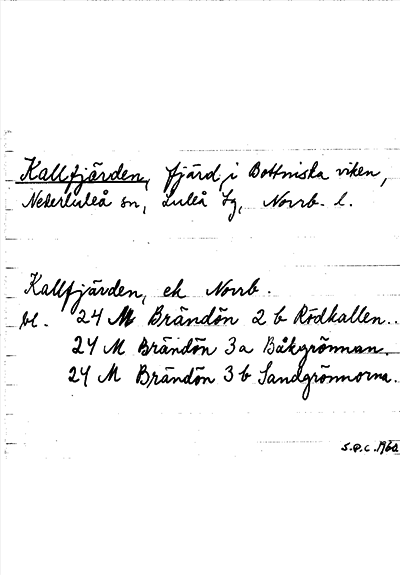 Kallfjärden, fjärd i Bottniska viken,
Nederluleå sn, Luleå tg, Norrb. l.
Kallfjärden, ek Norrb.
bl. 24 M Brändön 2 b Rödkallen.
24 M Brändön 3 a Båkgrönnan.
24 M Brändön 3 b Sandgrönnorna.
S.P.C. 1960